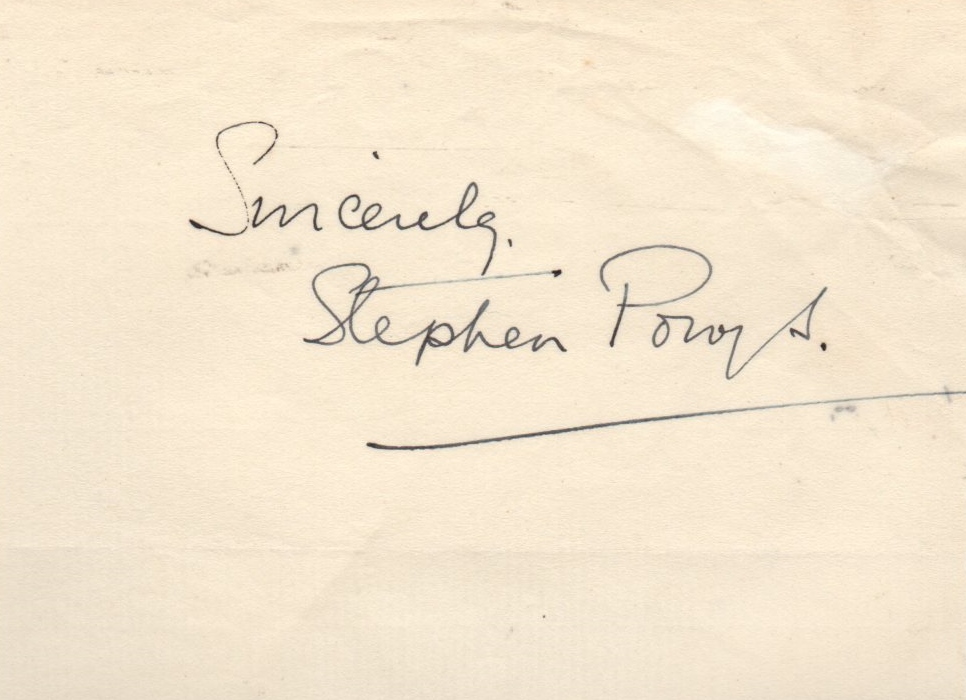 Sincerely.
Stephen Powys.